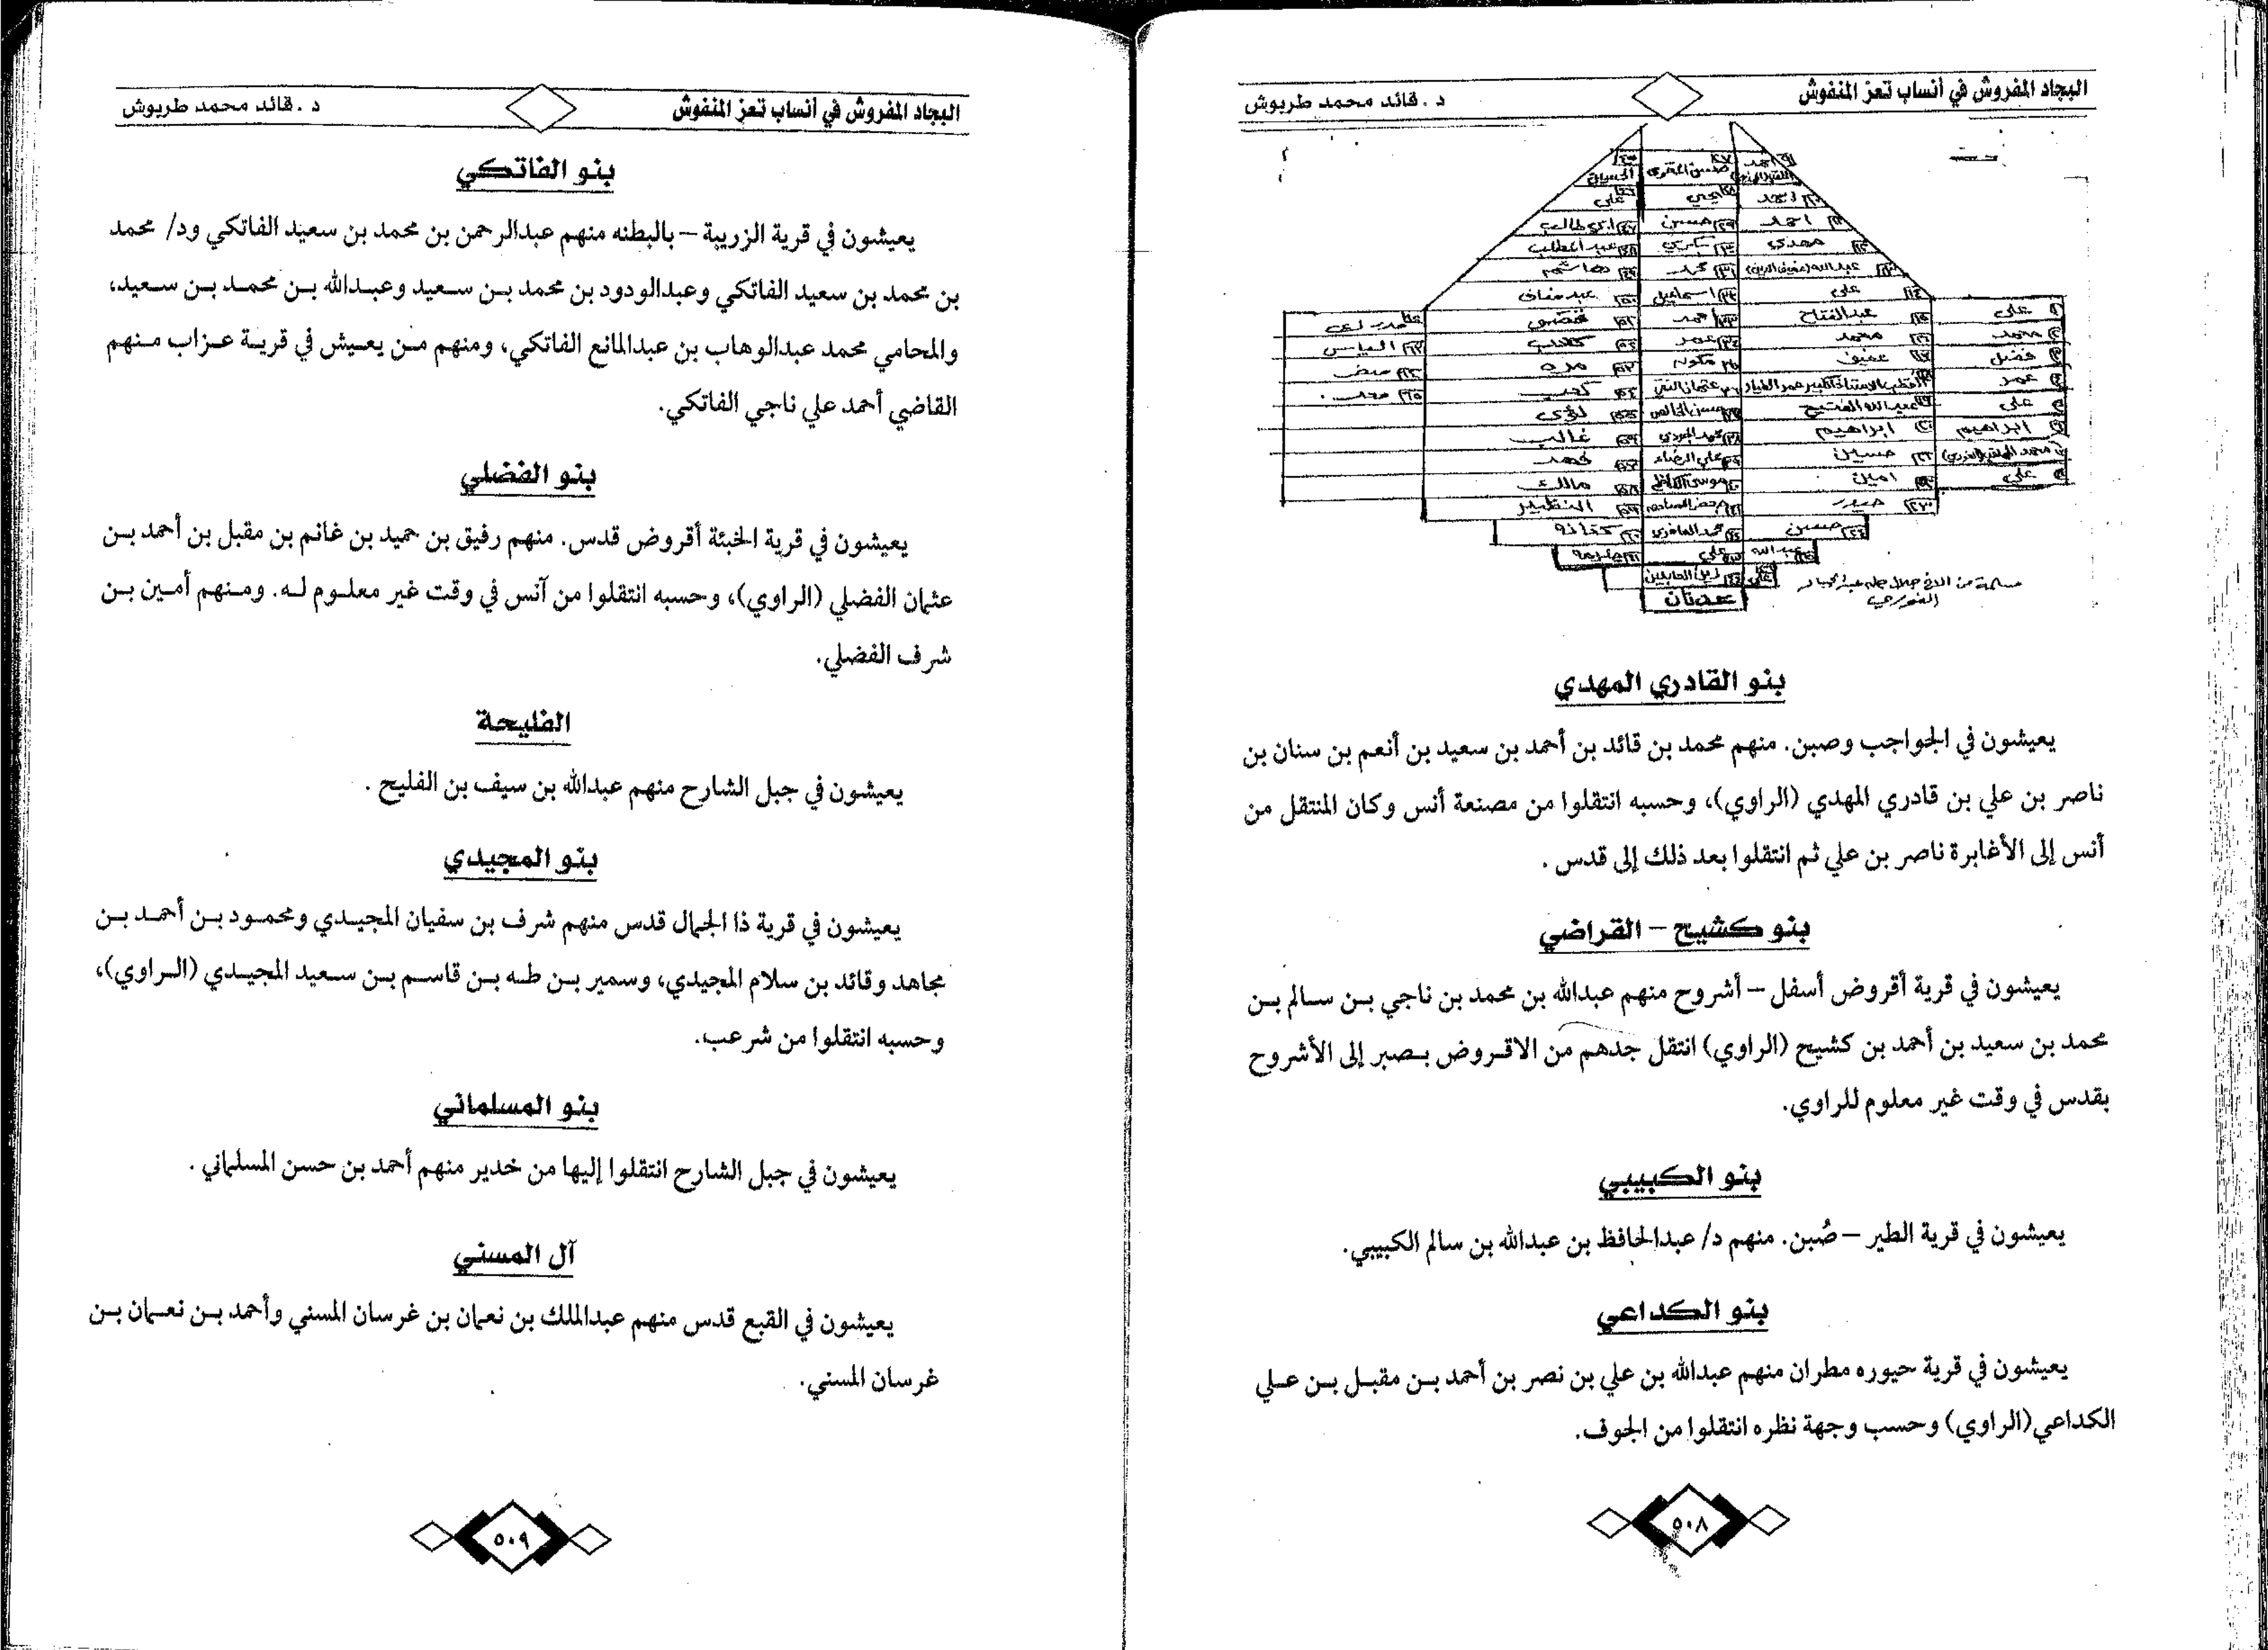 البجاد المفروش في أنساب تعز المنفوش
د. قائد محمد طربوش
احمد
يحيى
علي
احمد
حسين
ابي طالب
مهدي
عبد المطلب
محمد
هاشم
علي
اسماعيل
عبد مناف
علي
عبدالفتاح
احمد
قصي
محمد
محمد
عمر
كلاب
الياس
فضل
عفيف
مره
مضر
عمر
كعب
علي
لؤي
ابراهيم
ابراهيم
غالب
حسين
علي الرضاء
فهد
علي
امين
موسى الكاظم
مالك
حيدر
النظير
حسين
كنانة
عبدالله
علي
علي
زين العابدين
عدنان
بنو القادري المهدي
يعيشون في الجواجب وصبن. منهم محمد بن قائد بن أحمد بن سعيد بن أنعم بن سنان بن
ناصر بن علي بن قادري المهدي (الراوي)، وحسبه انتقلوا من مصنعة أنس وكان المنتقل من
أنس إلى الأغابرة ناصر بن علي ثم انتقلوا بعد ذلك إلى قدس .
بنو كشيح – القراضي
يعيشون في قرية أقروض أسفل – أشروح منهم عبدالله بن محمد بن ناجي بن سالم بن
محمد بن سعيد بن أحمد بن كشيح (الراوي) انتقل جدهم من الاقروض بصبر إلى الأشروح
بقدس في وقت غير معلوم للراوي.
بنو الكبيبي
يعيشون في قرية الطير – صُبن. منهم د/ عبدالحافظ بن عبدالله بن سالم الكبيبي.
بنو الكداعي
يعيشون في قرية حيوره مطران منهم عبدالله بن علي بن نصر بن أحمد بن مقبل بن علي
الكداعي(الراوي) وحسب وجهة نظره انتقلوا من الجوف.
٥٠٨
البجاد المفروش في أنساب تعز المنفوش
د. قائد محمد طربوش
بنو الفاتكي
يعيشون في قرية الزريبة – بالبطنه منهم عبدالرحمن بن محمد بن سعيد الفاتكي ود/ محمد
بن محمد بن سعيد الفاتكي وعبدالودود بن محمد بن سعيد وعبدالله بن محمد بن سعيد،
والمحامي محمد عبدالوهاب بن عبدالمانع الفاتكي، ومنهم من يعيش في قرية عزاب منهم
القاضي أحمد علي ناجي الفاتكي.
بنو الفضلي
يعيشون في قرية الخبئة أقروض قدس. منهم رفيق بن حميد بن غانم بن مقبل بن أحمد بن
عثمان الفضلي (الراوي)، وحسبه انتقلوا من آنس في وقت غير معلوم له. ومنهم أمين بن
شرف الفضلي.
الفليحة
يعيشون في جبل الشارح منهم عبدالله بن سيف بن الفليح .
بنو المجيدي
يعيشون في قرية ذا الجمال قدس منهم شرف بن سفيان المجيدي ومحمود بن أحمد بن
مجاهد وقائد بن سلام المجيدي، وسمير بن طه بن قاسم بن سعيد المجيدي (الراوي)،
وحسبه انتقلوا من شرعب.
بنو المسلماني
يعيشون في جبل الشارح انتقلوا إليها من خدير منهم أحمد بن حسن المسلماني .
آل المسني
يعيشون في القبع قدس منهم عبدالملك بن نعمان بن غرسان المسني وأحمد بن نعمان بن
غرسان المسني.
٥٠٩